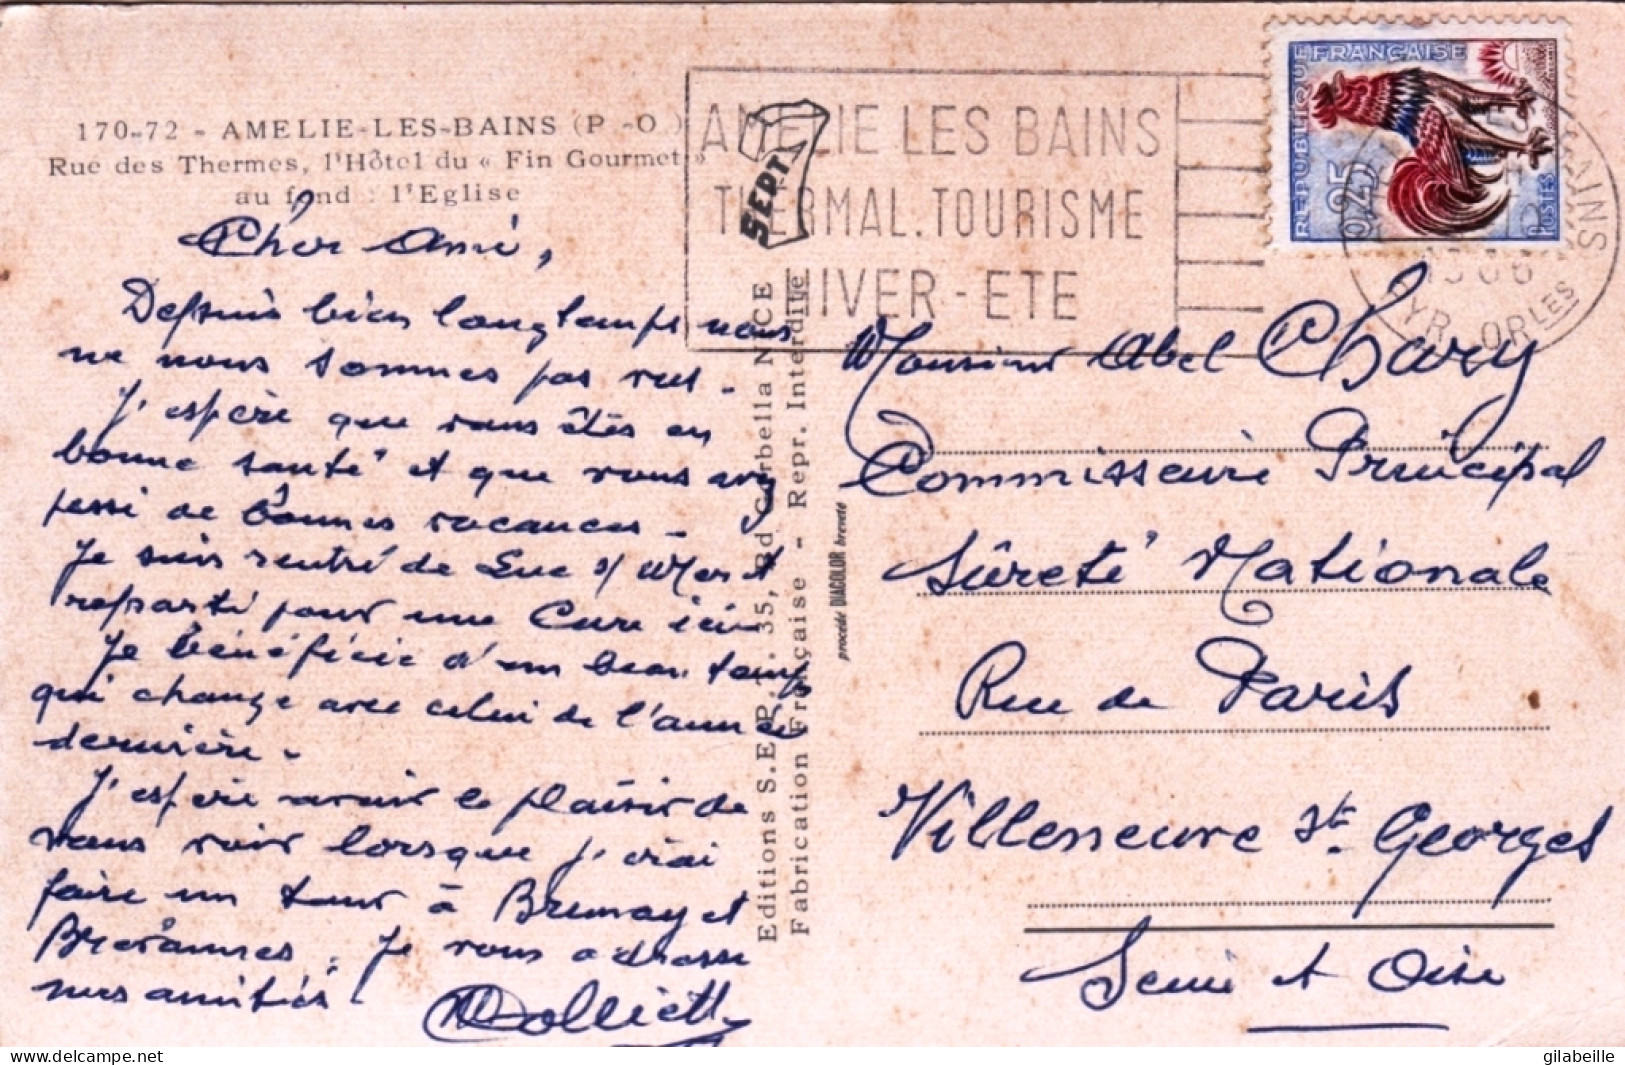 170-72 - AMELIE-LES-BAINS (P.-O.)
Rue des Thermes, l'Hôtel du « Fin Gourmet »
au fond : l'Eglise
Cher Ami,
Depuis bien longtemps nous
ne nous sommes pas vus.
J'espère que vous êtes en
bonne santé et que vous avez
passé de bonnes vacances.
Je suis rentré de Luc s/ Mer et
reparti pour une Cure ici
Je bénéficie d'un beau temps
qui change avec celui de l'année
dernière.
J'espère avoir le plaisir de
vous voir lorsque j'irai
faire un tour à Brunoy et
Je vous adresse
mes amitiés
AMELIE LES BAINS
THERMAL.TOURISME
HIVER - ETE
SEPT
REPUBLIQUE FRANÇAISE
0,25
POSTES
PYR. ORLES
Editions S.E.P. 35, Bd. Corbella NICE
Fabrication Française - Repr. Interdite
procédé DIAGOLOR breveté
Monsieur Abel Chary
Commissaire Principal
Sûreté Nationale
Rue de Paris
Villeneuve St. Georges
Seine et Oise
delcampe.net
gilabeille